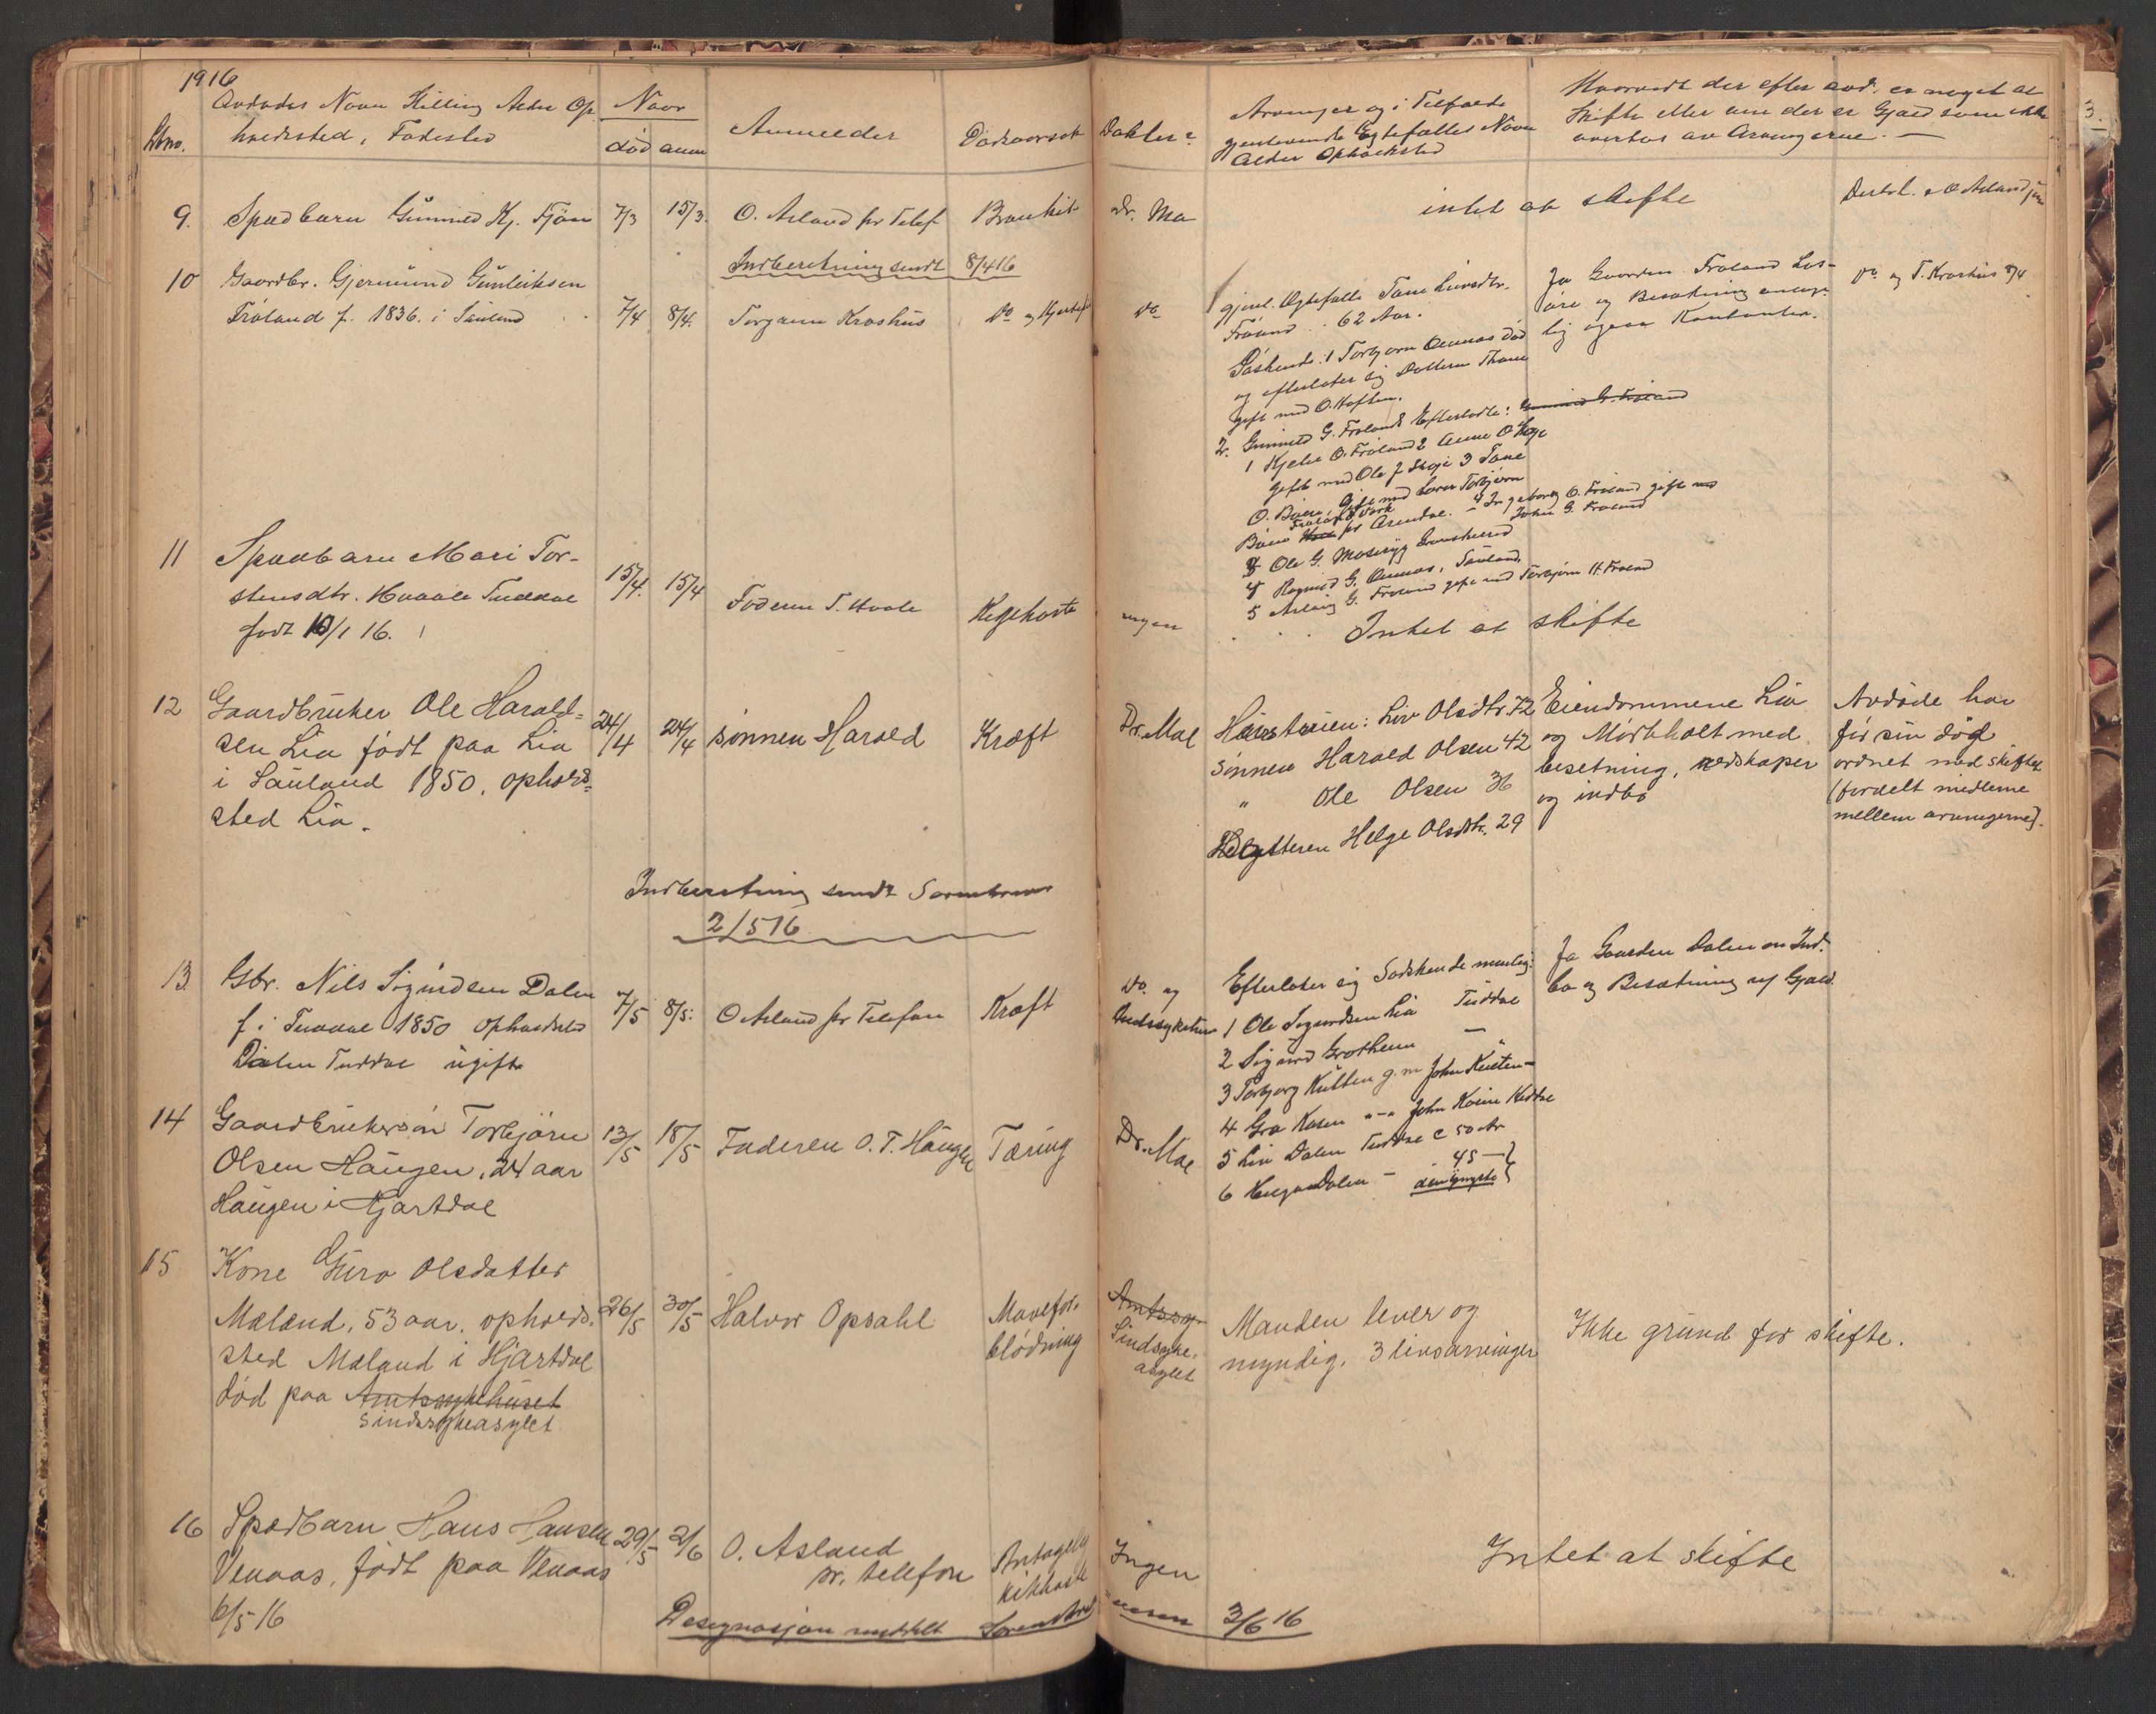 1916
Lbno.
Avdødes Navn Stilling Alder Op
holdssted, Fødested
Naar
død anm
Anmelder
Dødsaarsak
Dokter?
Arvinger og i Tilfælde
gjenlevende Egtefælles Navn
Alder Opholdsted
Hvorvidt der efter avd. er noget at
skifte eller om der er Gjæld som ikke
overtas av Arvingerne. —
3.
9. Spædbarn Gunnild Kj. Fjøn 7/3 15/3. O. Åsland pr Telef Bronkit Dr. Mæ intet at skifte
Indberetning sendt 8/4 16
10 Gaardbr. Gjermund Gunleiksen
Frøland f. 1836. i Sauland 7/4 8/4. Torgrim Kroshus do og Hjertefeil do
gjenl. Ægtefælle Tone Livsdtr.
Frøland 62 Aar.
Søskende: 1 Torbjørn Ormaas død
og efterlater sig Datteren Thone
gift med O. Haften.
2. Gunnild G. Frølands Efterladte: Gunnild G. Frøland
1 Kjetil O. Frøland 2 Anne O. Skoje
gift med Ole J. Skoje 3 Tone
O. Bøen, Gift med Lærer Torbjørn
Frølands Værk
Bøen pr Arendal. 4 Ingeborg O. Frøland gift med
John G. Frøland
3 Ole G. Moseryg Gransherred
4 Ragnild G. Ormaas, Sauland
5 Aslaug G. Frøland gift med Torbjørn H. Frøland
Ja Gaarden Frøland Løs-
øre og Besætning antage-
lig ogsaa Kontanter.
do og T. Kroshus 8/4
11 Spædbarn Mari Tor-
stensdtr. Hvaale Tuddal
født 10/1 16.
15/4. 15/4 Faderen T. Hvale Kighoste ingen Intet at skifte
12 Gaardbruker Ole Harald-
sen Lia født paa Lia
i Sauland 1850. ophold-
sted Lia.
24/4 24/4 sønnen Harald Kræft Dr. Mæl
Hustruen: Liv Olsdtr. 72
sønnen Harald Olsen 42
" Ole Olsen 36
Datteren Helge Olsdtr. 29
Eiendommene Lia
og Mørkholt med
besetning, redskaper
og indbo
Avdøde har
før sin død
ordnet med skiftet
(fordelt midlerne
mellem arvingerne).
Indberetning sendt Sorenskriver
2/5 16
13 Gbr. Nils Sigurdsen Dalen
f. i Tuddal 1850 opholdsted
Dalen Tuddal ugift
7/5 8/5. O Åsland pr Telefon Kræft do. og
Efterlater sig Sødskende menlig:
1 Ole Sigurdsen Lia Tuddal
2 Sigurd Grotheim —
3 Torbjørg Kulten g. m John Kulten —
4 Gro Kåsen "—" John Kåsen Heddal
5 Liv Dalen Tuddal c 50 Aar
6 Helga Dalen — 45 —
den yngste
Ja Gaarden Dalen m Ind-
bo og Besætning og Gjæld.
14 Gaardbrukersøn Torbjørn
Olsen Haugen, 24 aar
Haugen i Hjartdal
13/5 18/5 Faderen O. T. Haugen Tæring Dr. Mæl
15 Kone Guro Olsdatter
Mæland, 53 aar, opholds-
sted Mæland i Hjartdal
død paa Amtssykehuset
sindssykeasylet
26/5 30/5 Halvor Opsahl
Mavefor-
blødning
Amtssy-
Sindsyke-
asylet
Manden lever og
myndig. 3 livsarvinger
Ikke grund for skifte.
16 Spædbarn Hans Hansen
Venaas, født paa Venaas
6/5 16
29/5 2/6 O. Åsland
pr. telefon
Antagelig
kikhoste
Ingen
Intet at skifte
Designasjon inntilt Sorenskriveren 3/6 16